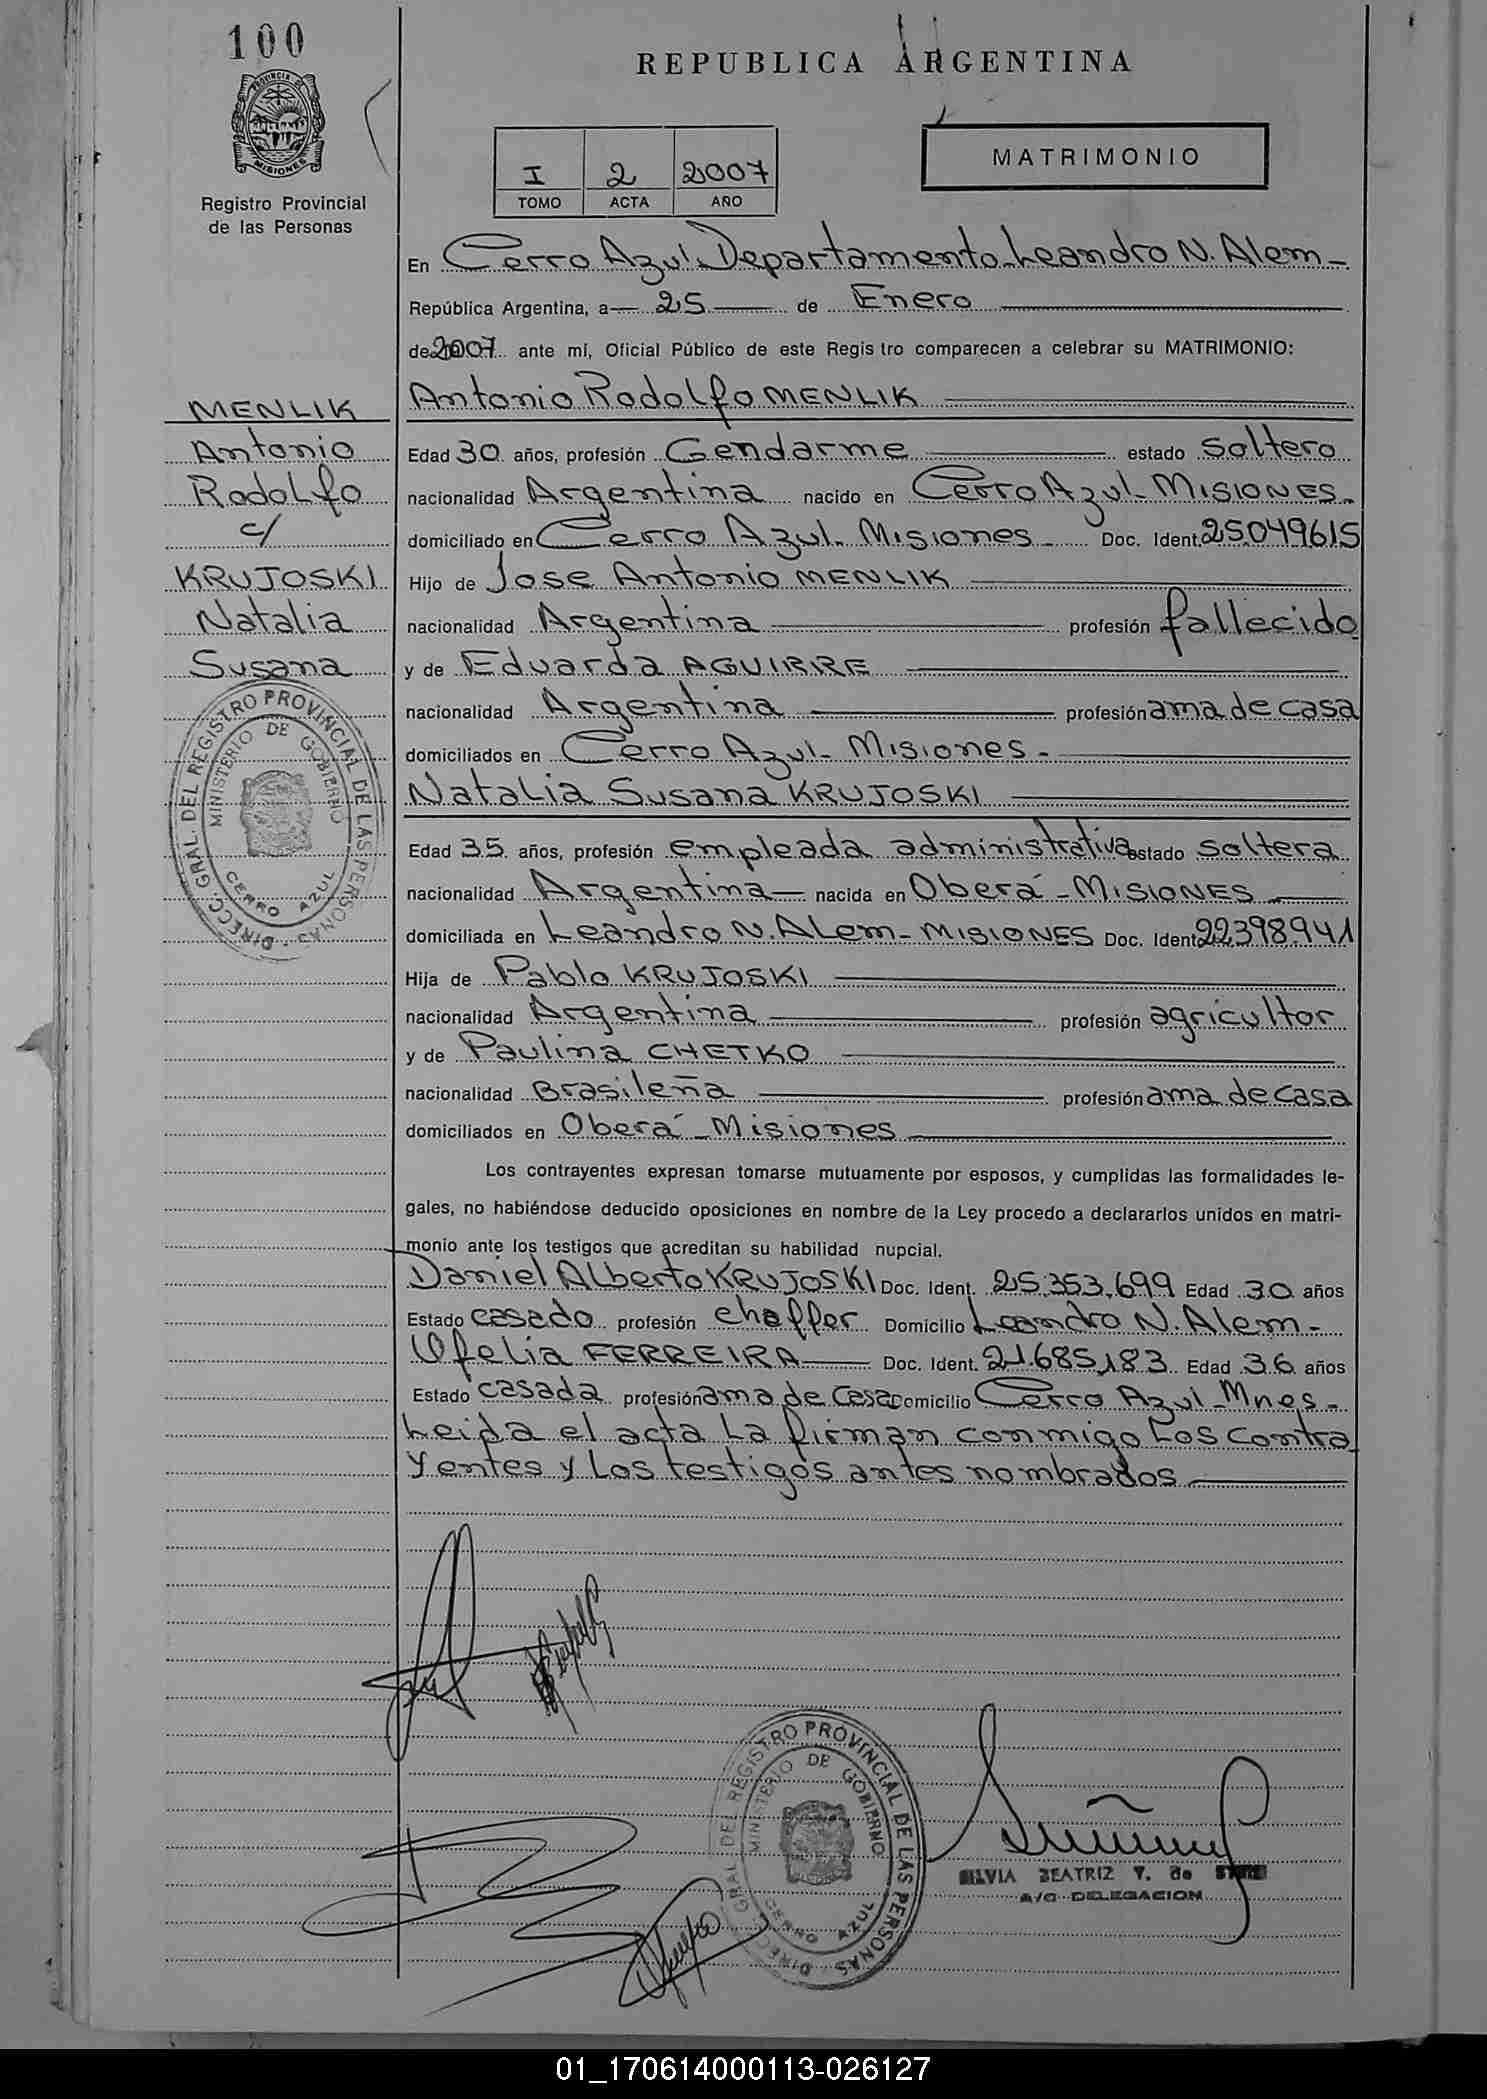 100
PROVINCIA DE
MISIONES
Registro Provincial
de las Personas
REPUBLICA ARGENTINA
MATRIMONIO
I 2 2007
TOMO ACTA AÑO
En Cerro Azul Departamento Leandro N. Alem-
República Argentina, a 25 de Enero
de 2007 ante mí, Oficial Público de este Registro comparecen a celebrar su MATRIMONIO:
MENLIK
Antonio
Rodolfo
c/
KRUJOSKI
Natalia
Susana
Antonio Rodolfo MENLIK
Edad 30 años, profesión Gendarme estado soltero
nacionalidad Argentina nacido en Cerro Azul- MISIONES-
domiciliado en Cerro Azul- Misiones- Doc. Ident. 25.049.615
Hijo de Jose Antonio MENLIK
nacionalidad Argentina profesión fallecido
y de Eduarda AGUIRRE
nacionalidad Argentina profesión ama de casa
domiciliados en Cerro Azul- Misiones-
Natalia Susana KRUJOSKI
Edad 35 años, profesión empleada administrativa estado soltera
nacionalidad Argentina nacida en Oberá-MISIONES
domiciliada en Leandro N. Alem-MISIONES Doc. Ident. 22.398.941
Hija de Pablo KRUJOSKI
nacionalidad Argentina profesión agricultor
y de Paulina CHETKO
nacionalidad Brasileña profesión ama de casa
domiciliados en Oberá-Misiones
Los contrayentes expresan tomarse mutuamente por esposos, y cumplidas las formalidades le-
gales, no habiéndose deducido oposiciones en nombre de la Ley procedo a declararlos unidos en matri-
monio ante los testigos que acreditan su habilidad nupcial.
Daniel Alberto KRUJOSKI Doc. Ident. 25.353.699 Edad 30 años
Estado casado profesión choffer Domicilio Leandro N. Alem-
Ofelia FERREIRA Doc. Ident. 21.685.183 Edad 36 años
Estado casada profesión ama de casa Domicilio Cerro Azul-Mnes-
Leida el acta la firman conmigo los contra
yentes y los testigos antes nombrados
DIRECC. GRAL. DEL REGISTRO PROVINCIAL DE LAS PERSONAS
MINISTERIO DE GOBIERNO
CERRO AZUL
DIRECC. GRAL. DEL REGISTRO PROVINCIAL DE LAS PERSONAS
MINISTERIO DE GOBIERNO
CERRO AZUL
SILVIA BEATRIZ V. de
A/C DELEGACION
01_170614000113-026127